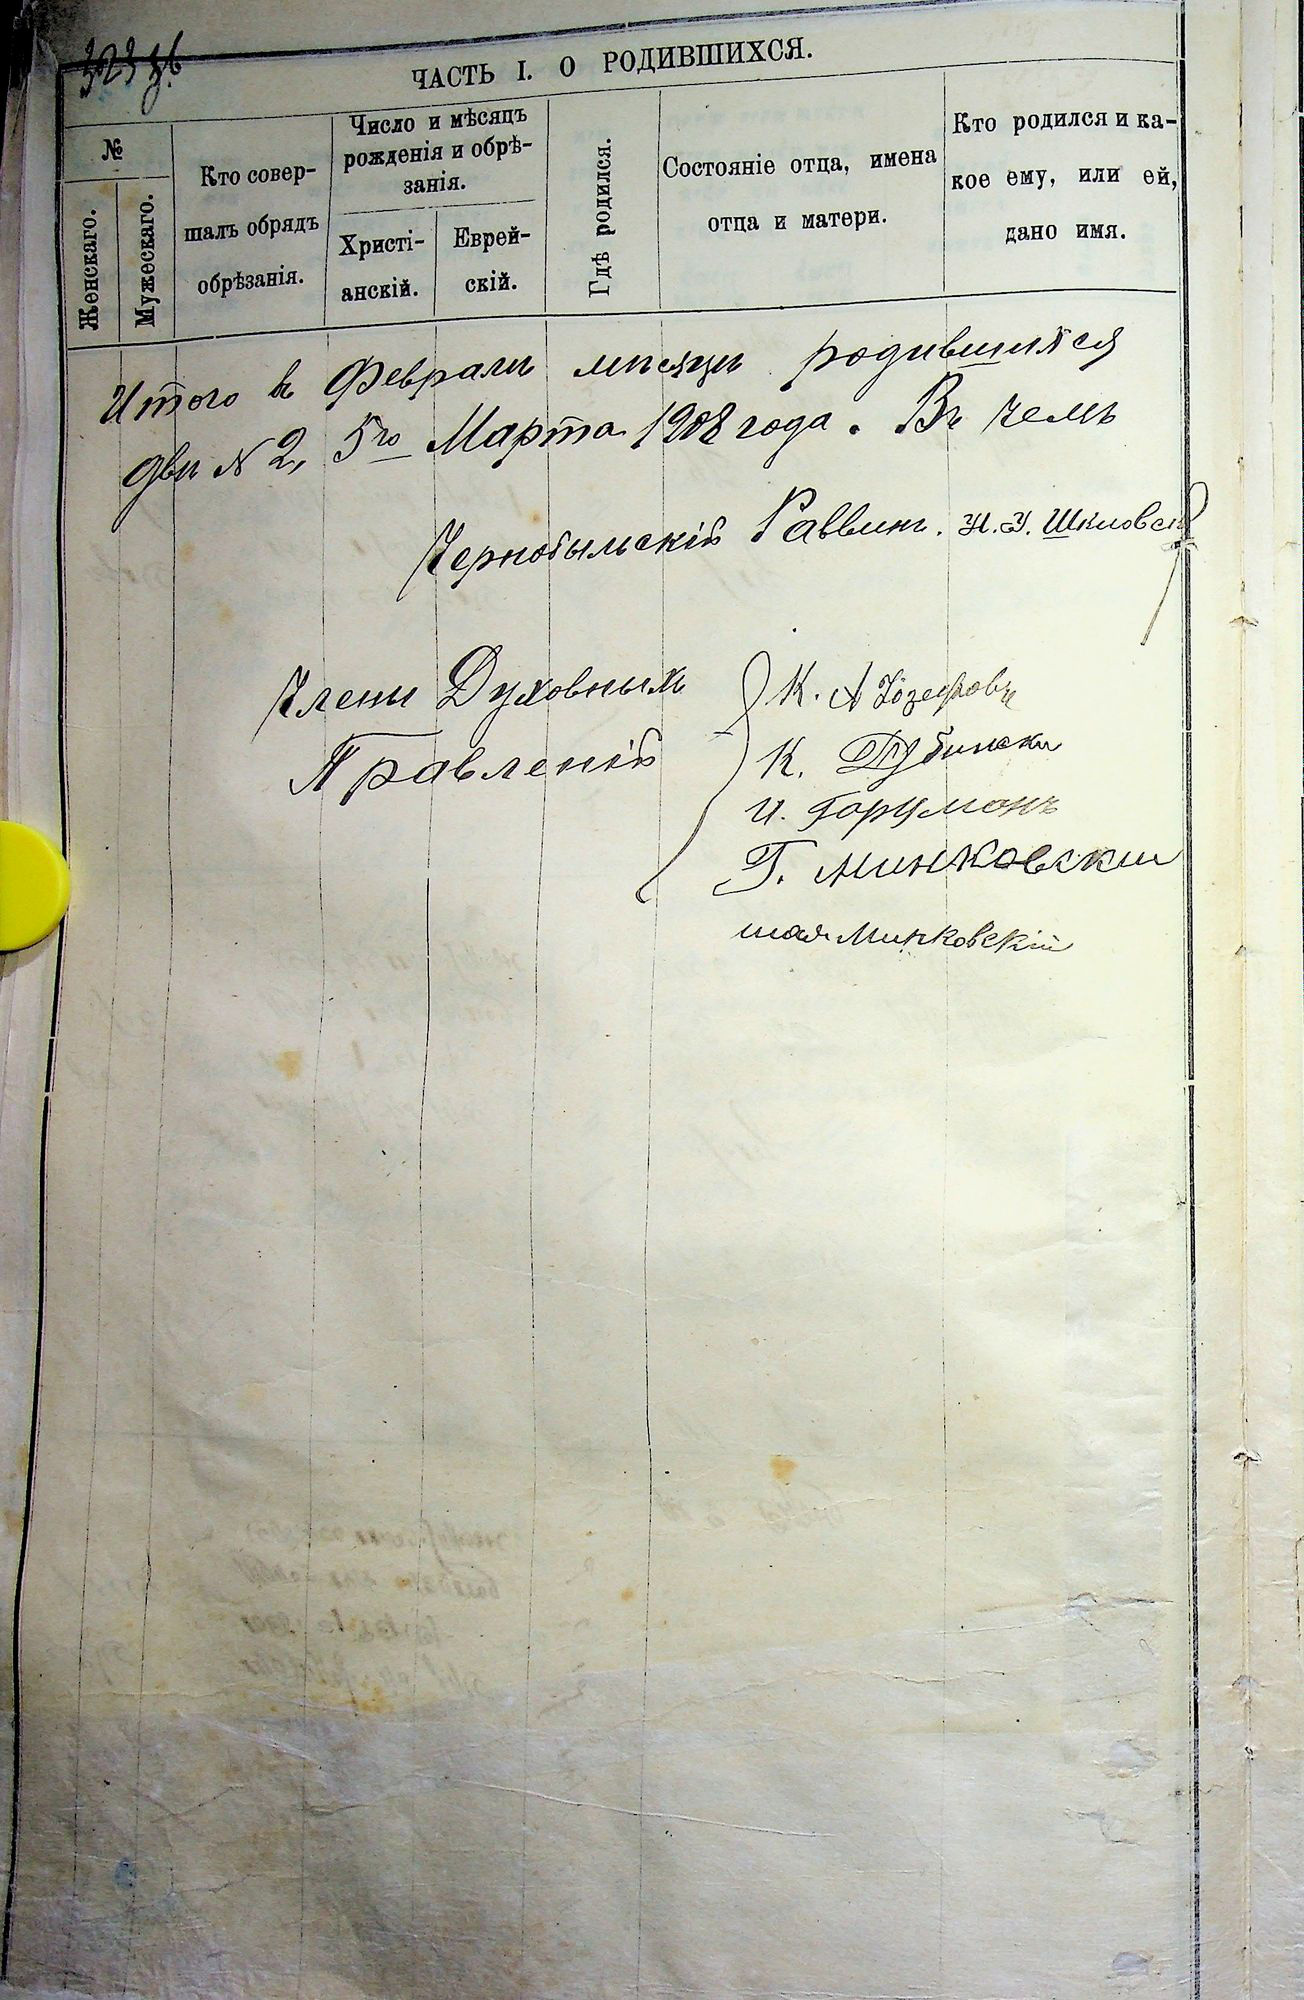 323 зв
ЧАСТЬ I. О РОДИВШИХСЯ.
№
Женскаго.
Мужескаго.
Кто совер-
шалъ обрядъ
обрѣзанія.
Число и мѣсяцъ
рожденія и обрѣ-
занія.
Христі-
анскій.
Еврей-
скій.
Гдѣ родился.
Состояніе отца, имена
отца и матери.
Кто родился и ка-
кое ему, или ей,
дано имя.
Итого въ Феврали мѣсяци родившихся
дви № 2, 5го Марта 1908 года. Въ чемъ
Чернобыльскій Раввинъ. Шкловскій
Члены Духовныхъ
Правленій
К. А Юзефовъ
К. Дубински
И. Горумонъ
Г. Минковский
шая Минковскій